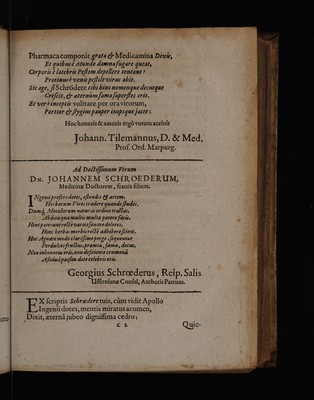 Pharmaca componit grata & Medicamina Divis,
Et quibus è Mundo damna fugare queat,
Corporis è latebris Pestem depellere tentans:
Protinus è venis pestile virus abit.
Sic age, si Schrödere tibi hinc nomenque decusque
Crescit, & aternùm fama superstes erit.
Et verbis inceptis volitare per ora virorum,
Partier & stygius pauper inopsque jacet;
Hoc honoris & amoris ergò votum accinit
Johann. Tilemannus, D. & Med.
Prof. Ord. Marpurg.
Ad Doctissimum Virum
DN. JOHANNEM SCHROEDERUM,
Medicinæ Doctorem, fratris filium.
INgenii profers dotes, ostendis & artem.
Herbarum Vires tradere quando studes.
Dumq, Metallorum naturas
Abdita qua multis
Hinc poterunt rectè varios sanare dolores,
Hinc herbas morbis rectè adhibere scient.
Hoc Agnate modo clarissime perge, sequentur
Perdulces fructus, præmia, fama, decus.
Non inhonorus eris, non deficiente crumenâ
Assiduâ passim dote celebris eris.
Georgius Schrœderus, Reip. Salis
Uffleniana Consul, Authoris Patruus.
EX scriptis Schrœdere tuis, cùm vidit Apollo
Ingenii dotes, mentis miratus acumen,
Dixit, æternâ jubeo dignissima cedro;
C 2 Quic-